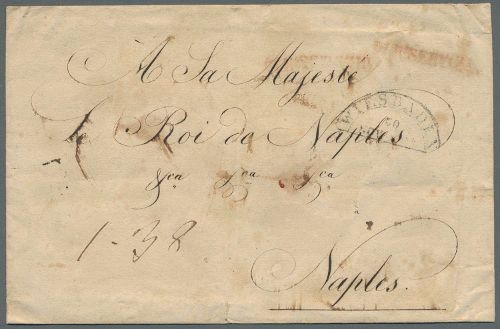 A Sa Majeste
le Roi de Naples
&ca &ca &ca
Naples.
WIESBADEN